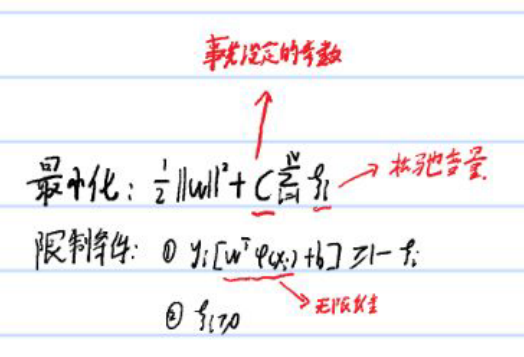 事先设定的参数
最小化: 1/2 ||w||² + C Σ_{i=1}^{N} ξ_i → 松弛变量
限制条件: ① y_i[w^T φ(x_i)+b] ≥ 1-ξ_i
无限维
② ξ_i ≥ 0